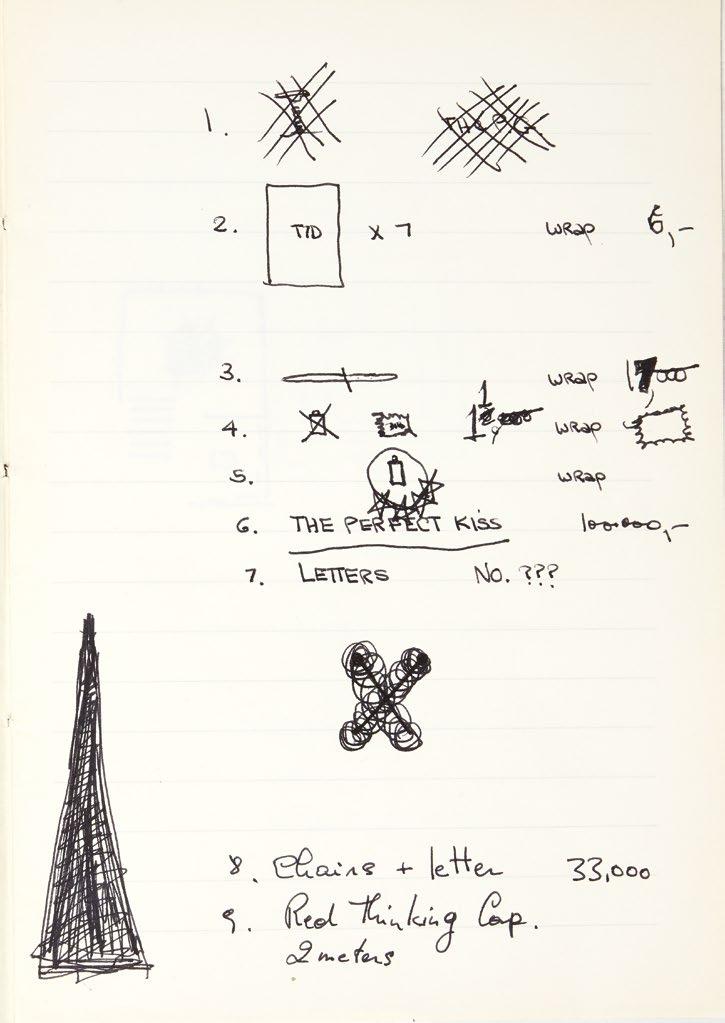 1.
2. TTD x 7 wrap 6,-
3. wrap
4. wrap
5. wrap
6. THE PERFECT KISS 100.000,-
7. LETTERS No. ???
8. Chairs + letter 33,000
9. Red Thinking Cap.
2 meters